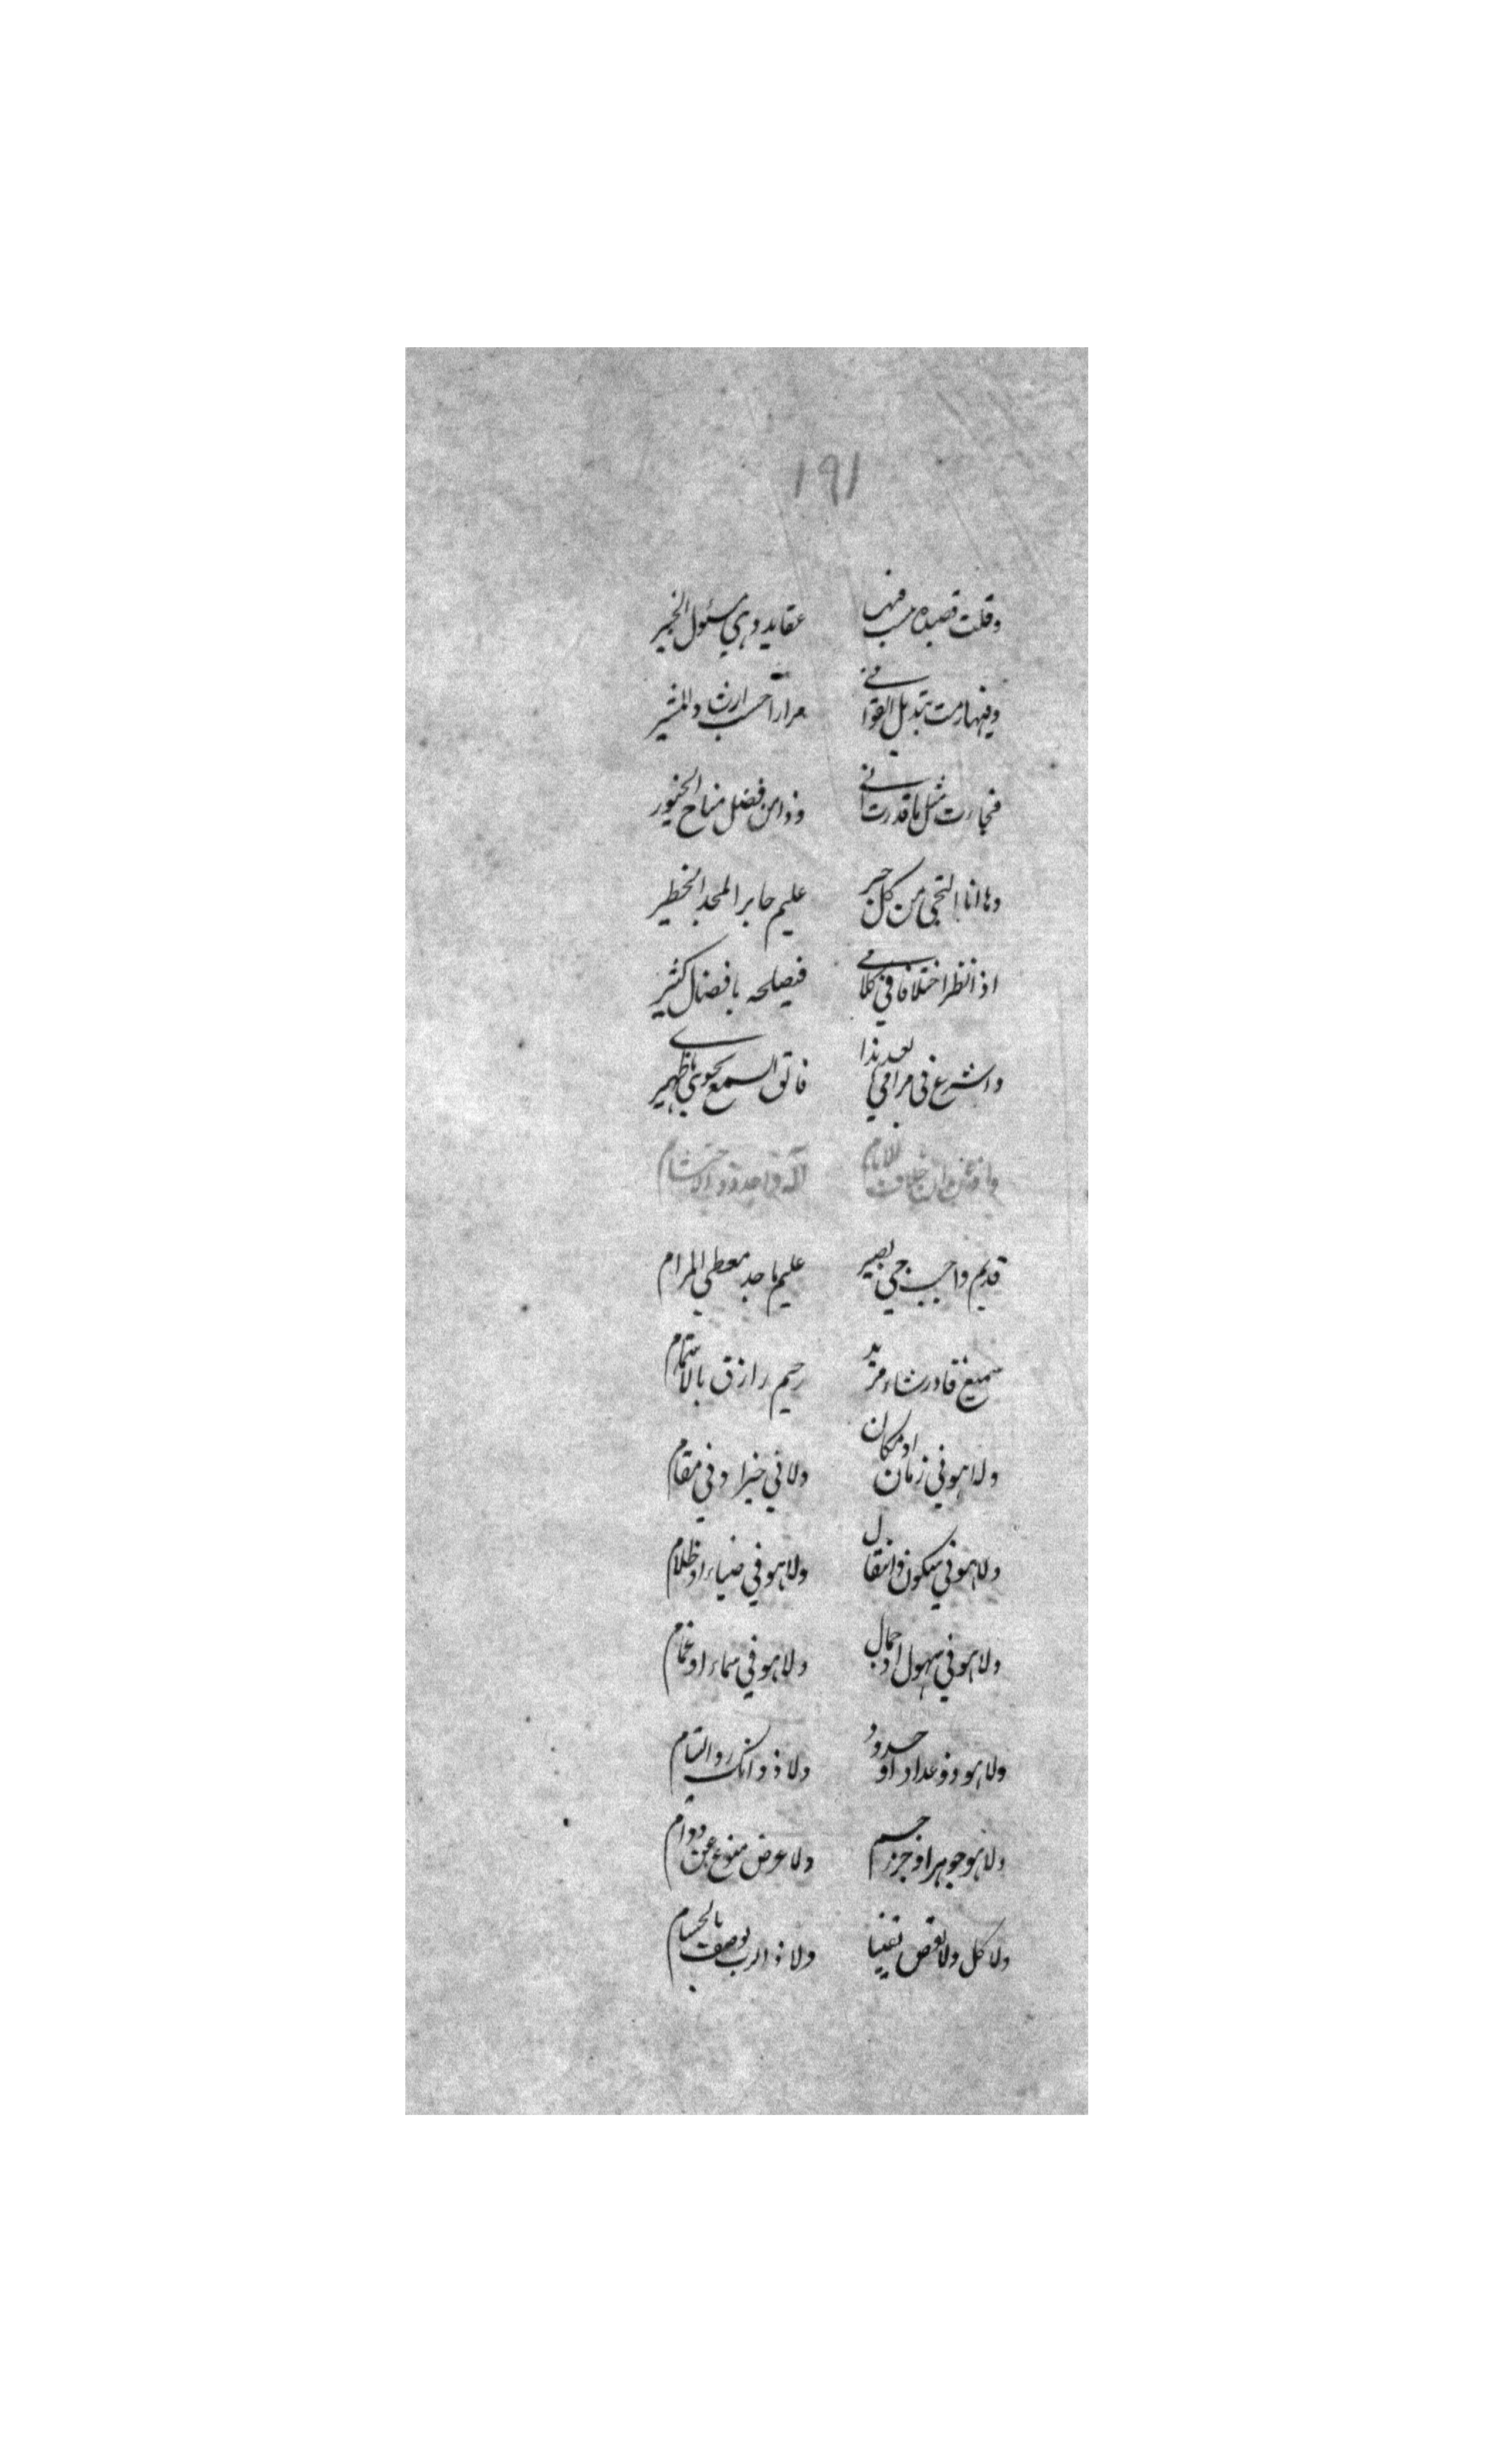 ١٩١
وقلت قصيدة حسب فيها عقايد وهي مسئول الخبير
وفيها رمت تبديل القوافي مرارا حسب ارشاد المشير
فجاءت مثل ما قدرت اني وذا من فضل مناح الخيور
وها انا التجي من كل حبر عليم حابر المجد الخطير
اذا نظر اختلافا في كلامي فيصلحه بافضال كثير
واشرع في مرامي بعد هذا فالق السمع نحوي يا ظهير
اله واحد ذو الاحتشام
قديم واجب حي بصير عليم ماجد معطي المرام
سميع قادر شاء مريد رحيم رازق بالاهتمام
ولا هو في زمان او مكان ولا في حيز او في مقام
ولا هو في سكون وانتقال ولا هو في ضياء او ظلام
ولا هو في سهول او جبال ولا هو في سماء او غمام
ولا هو ذو عداد او حدود ولا ذو انكسار والتيام
ولا هو جوهر او جزء جسم ولا عرض منوع عن دوام
ولا كل ولا بعض تقينا ولا ذا الرب يوصف بالجسام